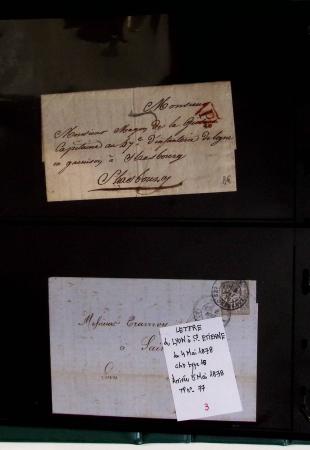 Monsieur
Monsieur Magon de la
Capitaine au 47e d'infanterie de ligne
en garnison à Strasbourg
Strasbourg
Messieurs
à Saint
LETTRE
de LYON à St. ETIENNE
du 4 Mai 1878
càd type 18
Arrivée 5 Mai 1878
TP N° 77
3